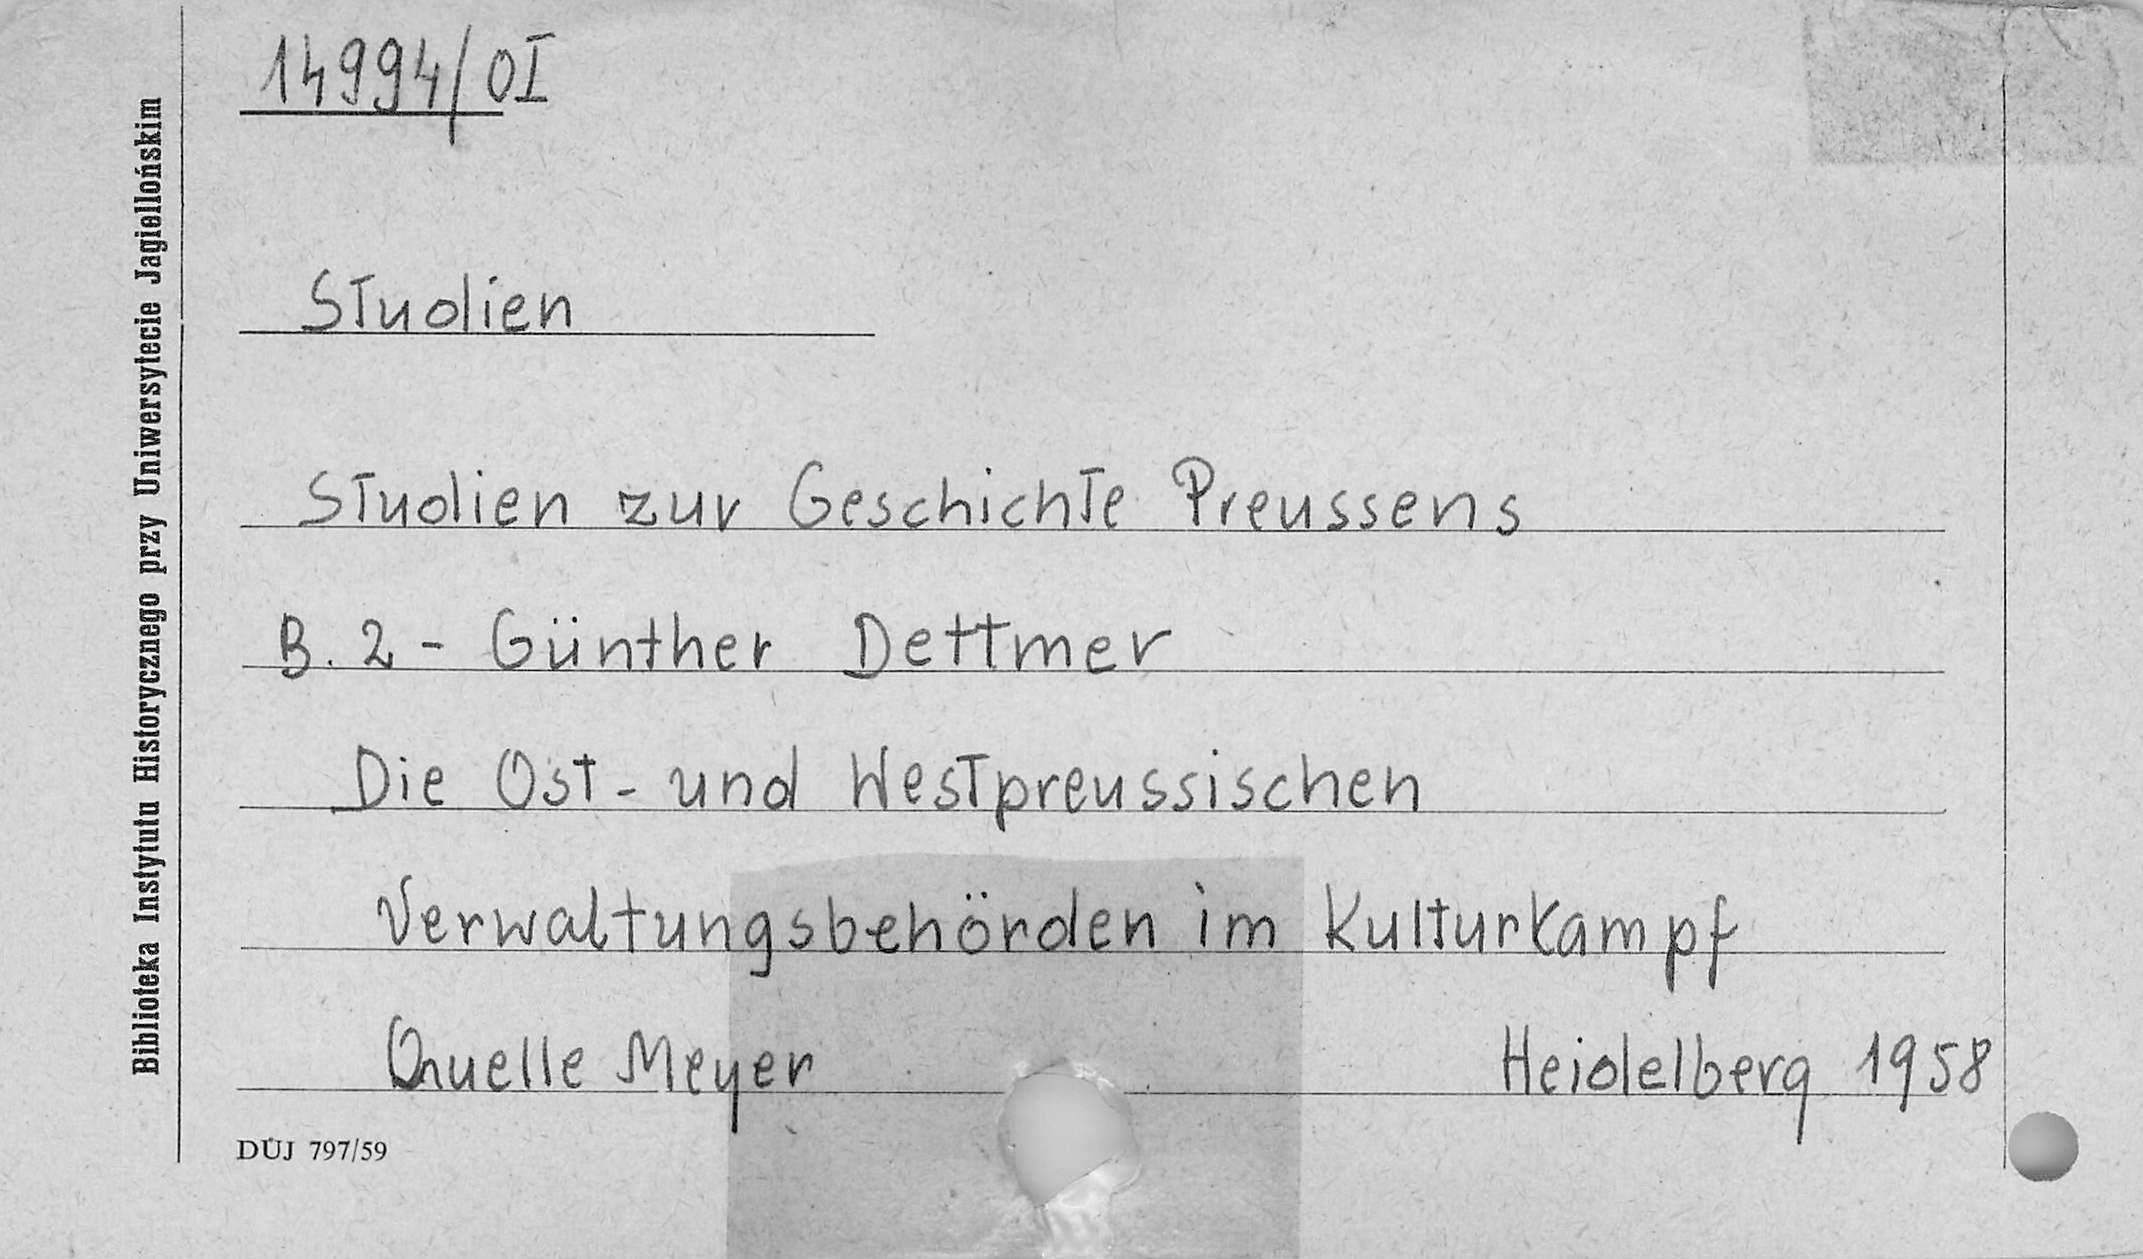 14994/OI
Studien
Studien zur Geschichte Preussens
B. 2 - Günther Dettmer
Die Ost- und Westpreussischen
Verwaltungsbehörden im Kulturkampf
Quelle Meyer Heidelberg 1958
DUJ 797/59
Biblioteka Instytutu Historycznego przy Uniwersytecie Jagiellońskim